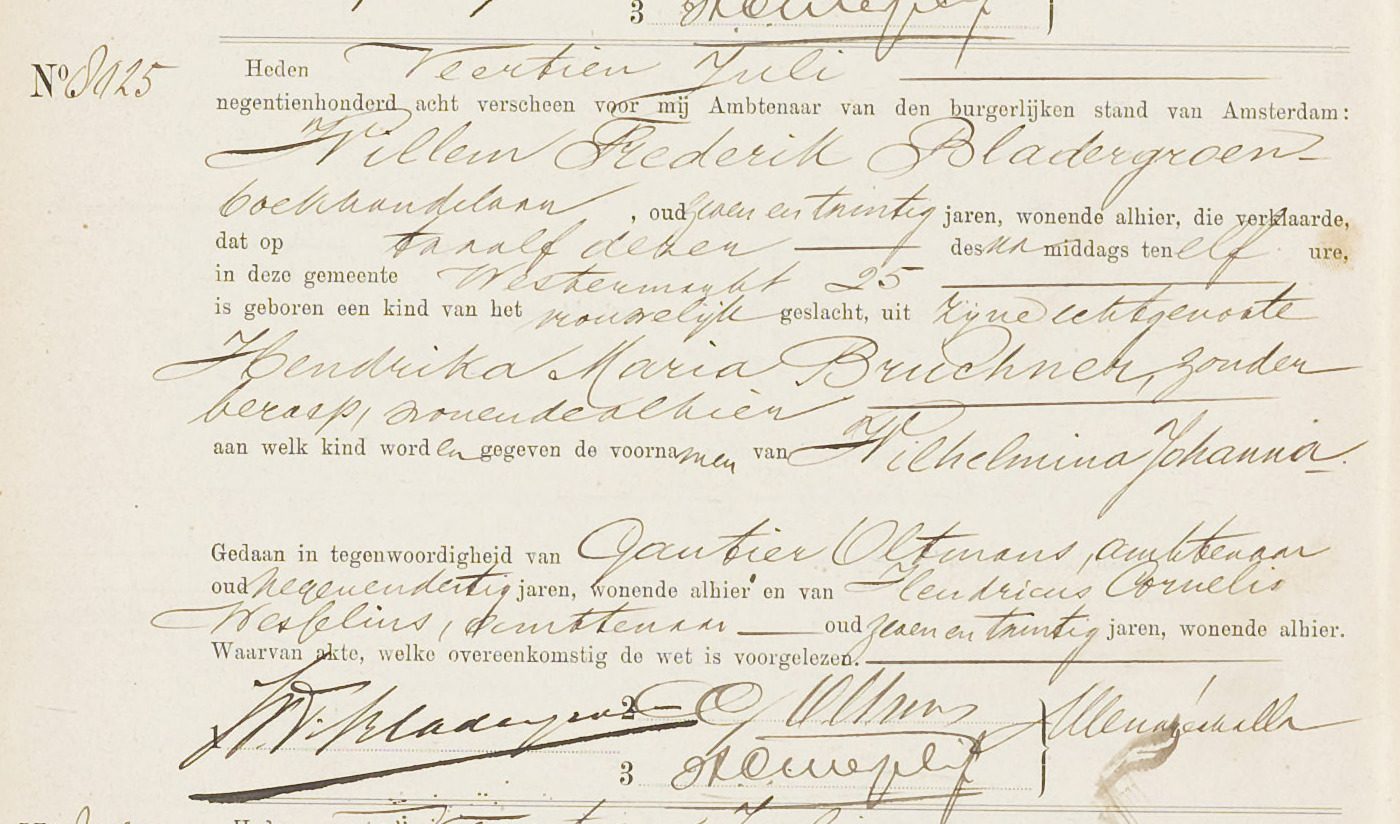 3
No 8125 Heden Veertien Juli
negentienhonderd acht verscheen voor mij Ambtenaar van den burgerlijken stand van Amsterdam:
Willem Frederik Bladergroen
boekhandelaar, oud zeven en twintig jaren, wonende alhier, die verklaarde,
dat op twaalf dezer des na middags ten elf ure,
in deze gemeente Westermarkt 25
is geboren een kind van het vrouwelijk geslacht, uit zijne echtgenoote
Hendrika Maria Bruchner, zonder
beroep, wonende alhier
aan welk kind worden gegeven de voornamen van Wilhelmina Johanna.
Gedaan in tegenwoordigheid van Gautier Oltmans, ambtenaar
oud negenendertig jaren, wonende alhier en van Hendricus Cornelis
Wesselius, ambtenaar oud zeven en twintig jaren, wonende alhier.
Waarvan akte, welke overeenkomstig de wet is voorgelezen.
W. F. Bladergroen 2 G Oltmans
3
Heden